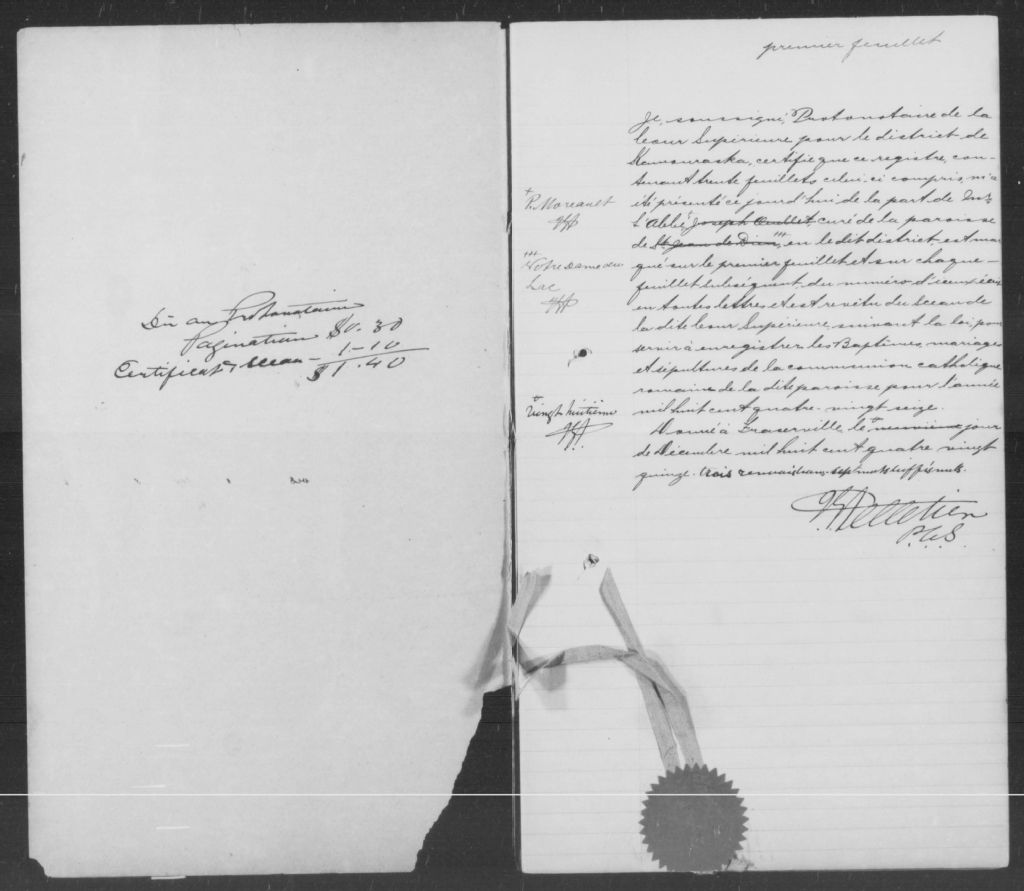 Dû au Protonotaire
Pagination $0.30
Certificat & sceau - 1-10
$1.40
premier feuillet
Je, soussigné, Protonotaire de la
Cour Supérieure pour le district de
Kamouraska, certifie que ce registre, con-
tenant trente feuillets celui-ci compris, m'a
été présenté ce jourd'hui de la part de
L'Abbé + Joseph Ouellet, curé de la paroisse
de St Jean de Dieu, en le dit district, est mar
qué sur le premier feuillet et sur chaque
feuillet subséquent du numéro d'iceux écrit
en toutes lettres et est revêtu du Sceau de
la dite Cour Supérieure, suivant la loi, pour
servir à enregistrer les Baptêmes, mariages
et sépultures de la communion catholique
romaine de la dite paroisse pour l'année
mil huit cent quatre-vingt seize.
Donné à Fraserville, le + jour
de Décembre mil huit cent quatre vingt
quinze. trois renvois bons, sept mots biffés nuls.
Pelletier
P.C.S.
+
P. Moreault
+++
Notre Dame du
Lac
+
Vingt huitième